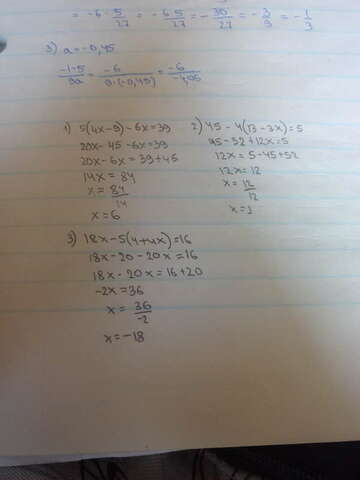 = -6 · 5/27 = -6·5/27 = -30/27 = -3/9 = -1/3
3) a = -0,45
-1-5/9a = -6/9·(-0,45) = -6/-4,05
1) 5(4x-9)-6x=39
20x-45-6x=39
20x-6x=39+45
14x=84
x=84/14
x=6
2) 45-4(13-3x)=5
45-52+12x=5
12x=5-45+52
12x=12
x=12/12
x=1
3) 18x-5(4+4x)=16
18x-20-20x=16
18x-20x=16+20
-2x=36
x=36/-2
x=-18